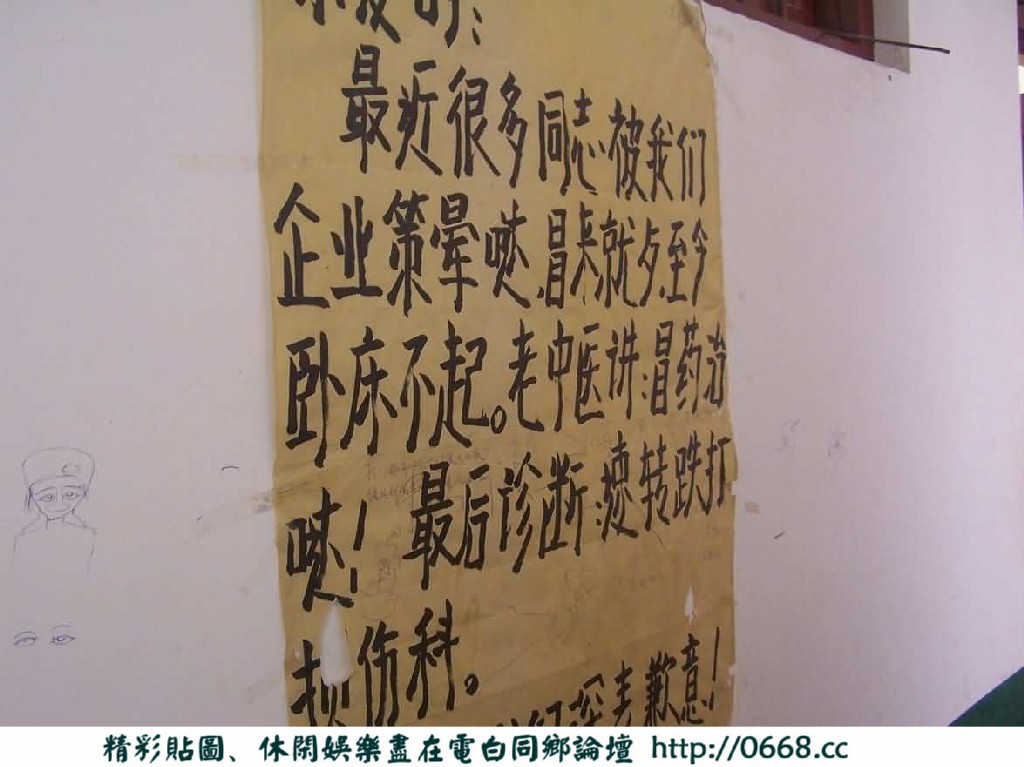 的：
最近很多同志被我们
企业策晕哒，冒来就 至今
卧床不起。老中医讲：冒药治
哒！最后诊断： 转跌打
损伤科。
深表歉意！
精彩貼圖、休閑娛樂盡在電白同鄉論壇 http://0668.cc